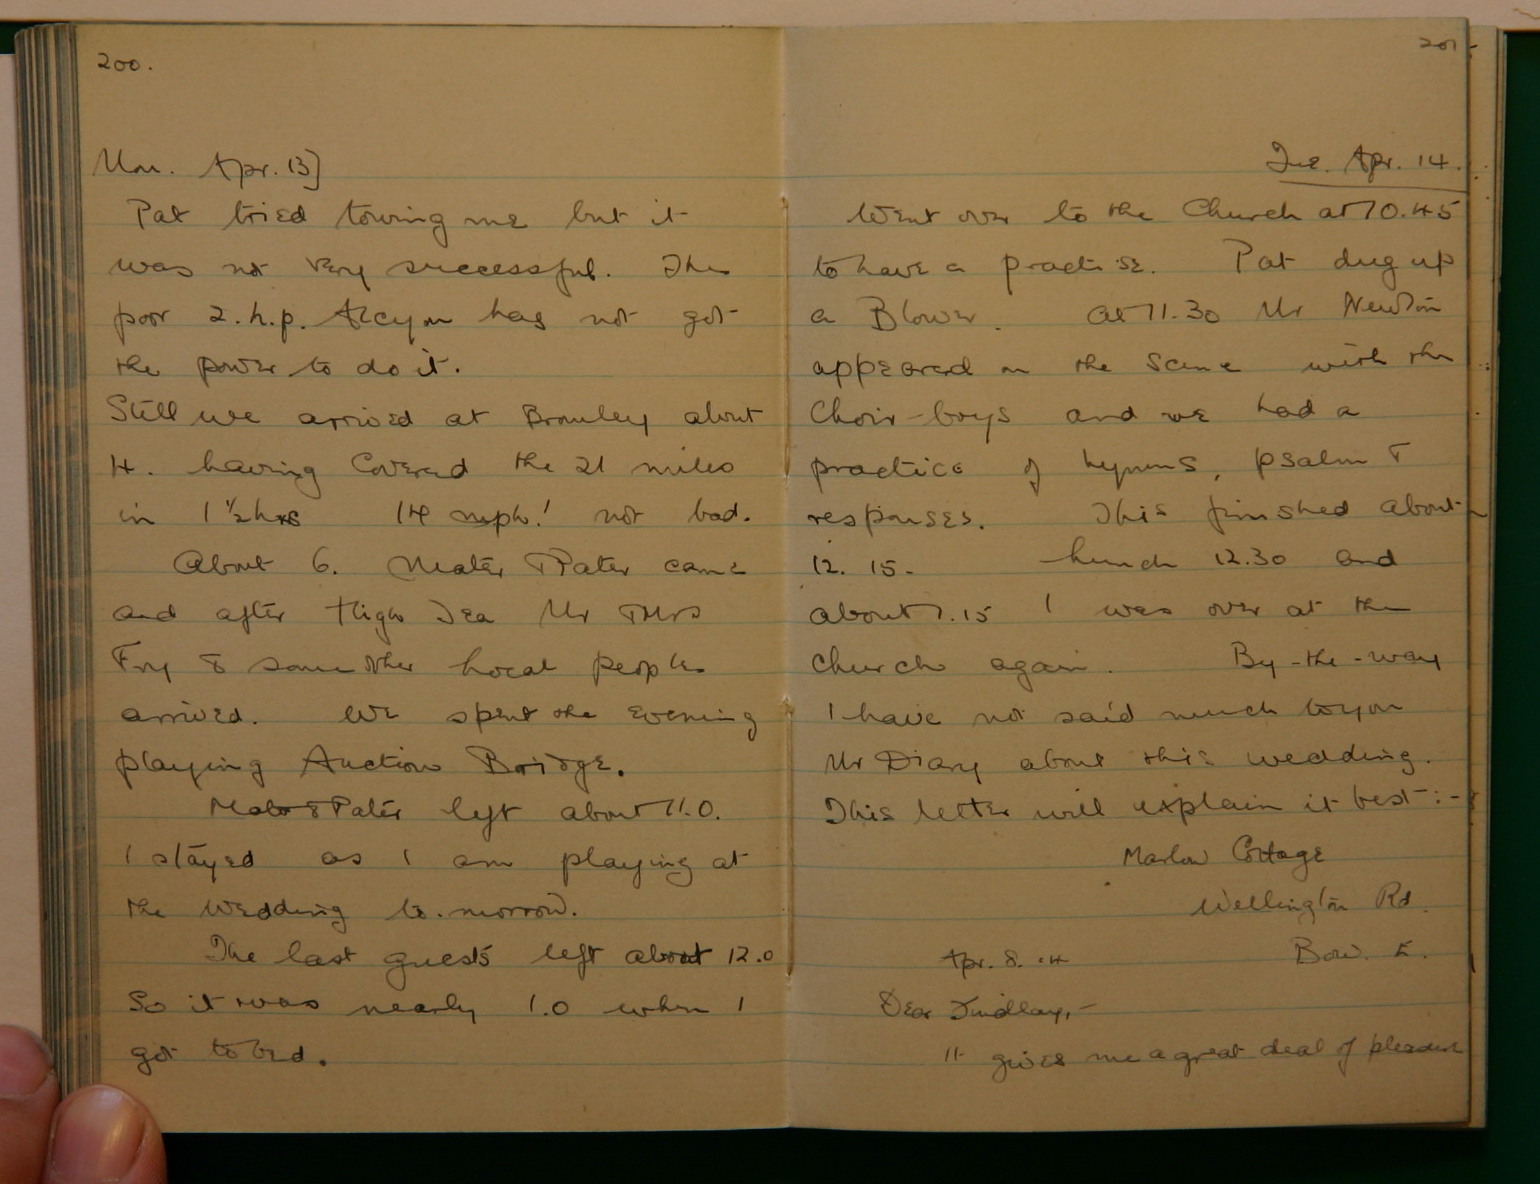 200.
Mon. Apr. 13]
Pat tried towing me but it
was not very successful. The
poor 2.h.p. Alcyon has not got
the power to do it.
Still we arrived at Bromley about
4. having covered the 21 miles
in 1½ hrs 14 mph! not bad.
About 6. Mater & Pater came
and after High Tea Mr & Mrs
Fry & some other local people
arrived. We spent the evening
playing Auction Bridge.
Mater & Pater left about 11.0.
I stayed as I am playing at
the Wedding to-morrow.
The last guests left about 12.0
So it was nearly 1.0 when I
got to bed.
201
Tue. Apr. 14.
Went over to the Church at 10.45
to have a practise. Pat dug up
a Blower. At 11.30 Mr Newton
appeared on the scene with the
Choir-boys and we had a
practice of hymns, psalm &
responses. This finished about
12.15. Lunch 12.30 and
about 1.15 I was over at the
church again. By-the-way
I have not said much to you
Mr Diary about this wedding.
This letter will explain it best:-
Marlow Cottage
Wellington Rd.
Bow. E.
Apr. 8. 14
Dear Findlay,-
It gives me a great deal of pleasure